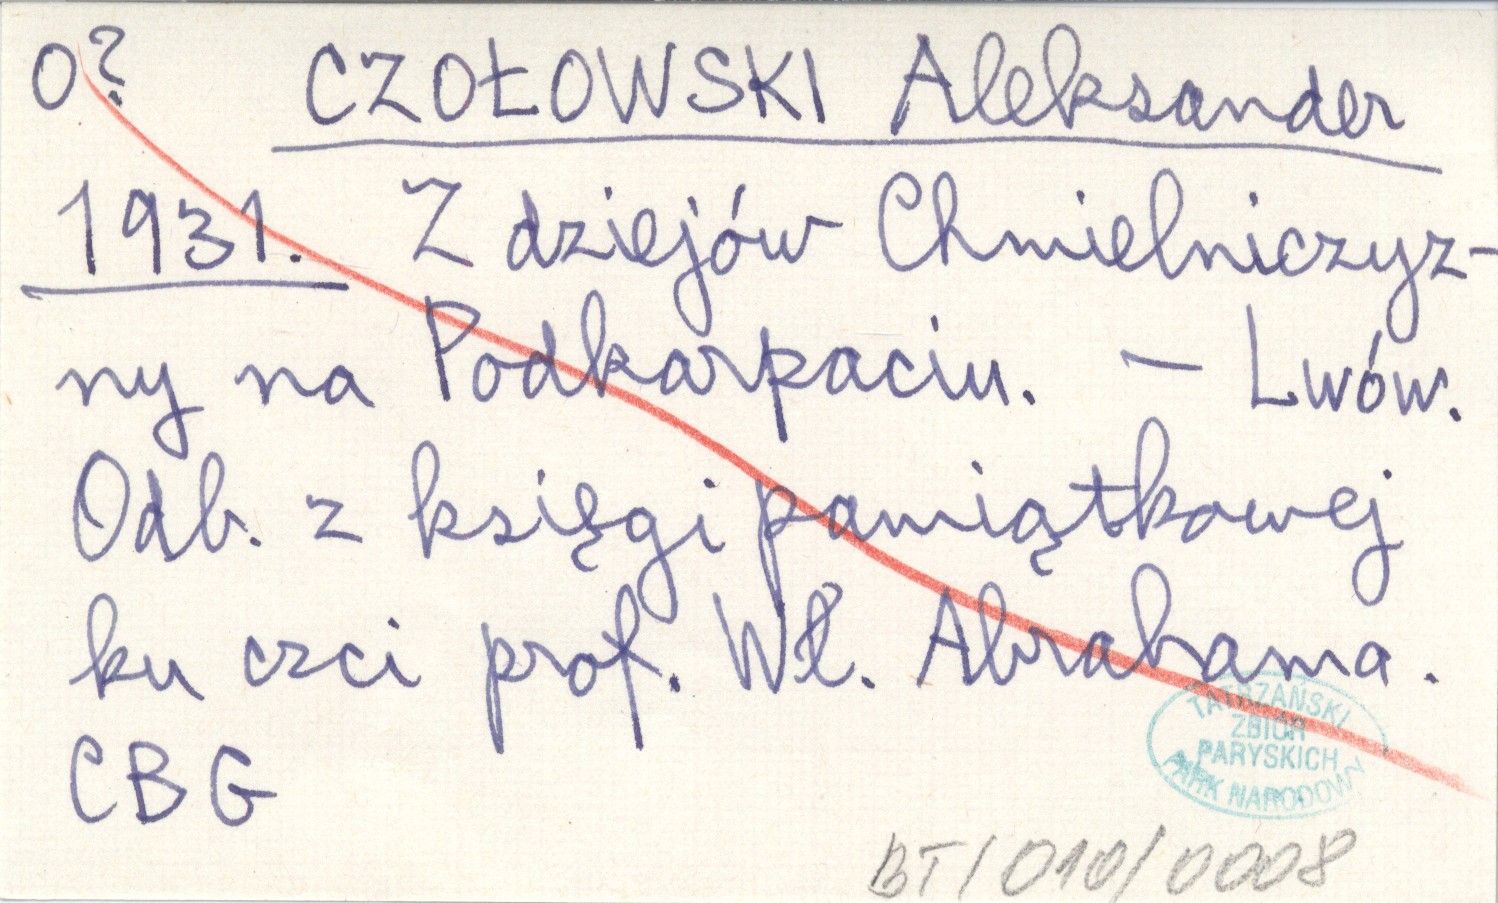 O? CZOŁOWSKI Aleksander
1931. Z dziejów Chmielniczyz-
ny na Podkarpaciu. — Lwów.
Odb. z księgi pamiątkowej
ku czci prof. Wł. Abrahama.
CBG
TATRZAŃSKI
ZBIÓR
PARYSKICH
PARK NARODOWY
BT/010/0008